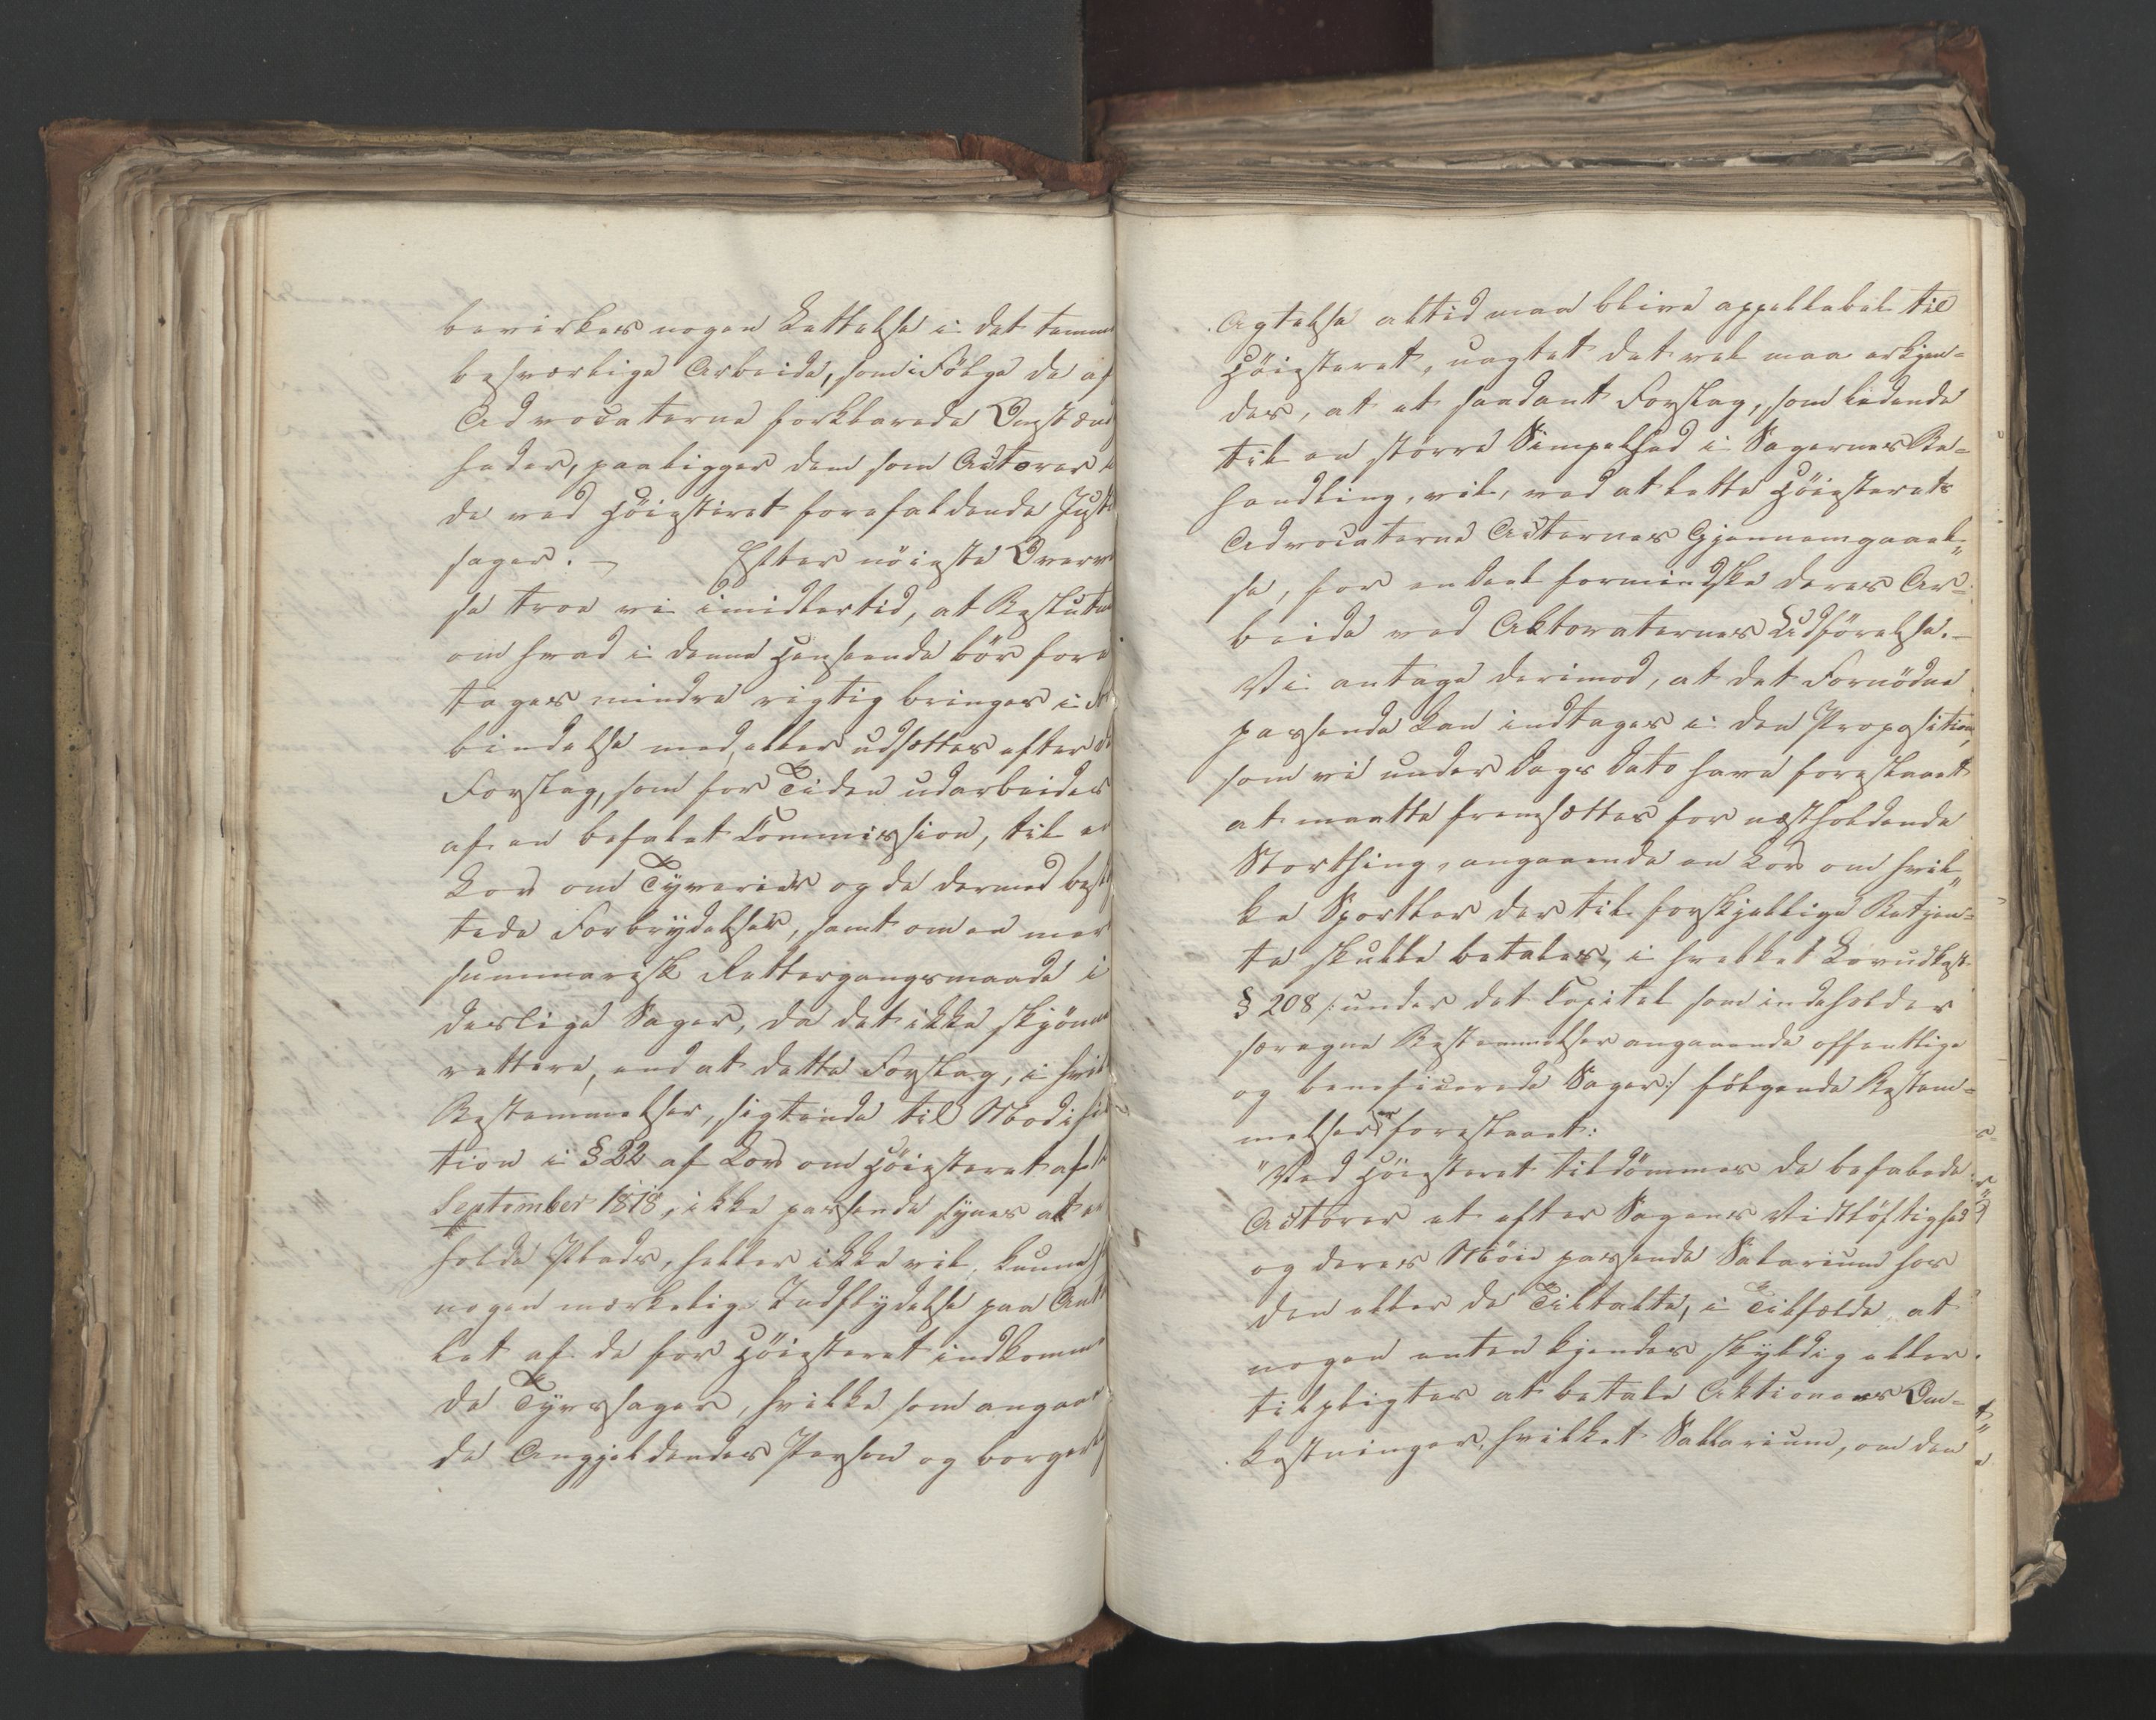 bevirkes nogen Lettelse i det temme
besværlige Arbeide, som i Følge de af
Advocaterne forklarede Omstænd
heder, paaligger dem som Actorer
de ved Höiesteret forefaldende Justi
sager. – Efter nöieste Overve
se troe vi imidlertid, at Beslutn
om hvad i denne Henseende bör fore
tages mindre rigtig bringes i For
bindelse med, eller udsættes efter det
Forslag, som for Tiden udarbeides
af en befalet Commission, til en
Lov om Tyverier og de dermed besl
tede Forbrydelser, samt om en mer
summarisk Rettergangsmaade i
deslige Sager, da det ikke skjönne
rettere, end at dette Forslag, i hvil
Bestemmelser, sigtende til Modifi
tion i § 22 af Lov om Höiesteret af
September 1818, ikke passende synes at er
holde Plads, heller ikke vil kunne
nogen mærkelig Indflydelse paa Ant
let af de for Höiesteret indkomm
de Tyvssager, hvilke som angaae
de Angjeldendes Person og borgerl
Agtelse altid maa blive appellabel til
Höiesteret, uagtet det vel maa erkjen=
des, at et saadant Forslag, som ledende
til en större Simpelhed i Sagernes Be=
handling, vil, ved at lette Höiesterets
Advocaterne Acternes Gjennemgaael„
se, for en Deel formindske deres Ar=
beide ved Aktoraternes Udförelse. –
Vi antage derimod, at det Fornödne
passende kan indtages i den Proposition,
som vi under Dags Dato have foreslaaet
at maatte fremsættes for næstholdende
Storthing, angaaende en Lov om hvil„
ke Sportler der til forskjellige Betjen=
te skulle betales, i hvilket Lovudkast
§ 208 /: under det Capitel som indeholder
særegne Bestemmelser angaaende offentlige
og beneficerede Sager :/ fölgende Bestem=
melser er foreslaaet:
"Ved Höiesteret tildömmes de befalede
Actorer et efter Sagens Vidtlöftighed
og deres Möie passende Salarium hos
den eller de Tiltalte, i Tilfælde, at
nogen enten kjendes skyldig eller
tilpligtes at betale Aktionens Om=
kostninger, hvilket Sallarium, om den